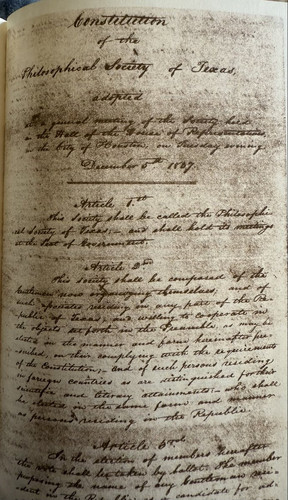 Constitution
of the
Philosophical Society of Texas,
adopted
At a general meeting of the Society held
in the Hall of the House of Representatives,
in the City of Houston, on Tuesday evening
December 5th 1837.
Article 1st
This Society shall be called the Philosophi-
cal Society of Texas; and shall hold its meetings
at the Seat of Government.
Article 2nd
This Society shall be composed of the
Gentlemen now organizing themselves, and of
such residing in any part of the Re-
public of Texas, and willing to cooperate in
the objects set forth in the Preamble, as may be
elected in the manner and form hereinafter pre-
scribed, on their complying with the requirements
of the Constitution, and of such persons residing
in foreign countries as are distinguished for their
scientific and literary attainments, who shall
be elected in the same form, and manner
as persons residing in the Republic.
Article 3rd
In the election of members hereafter
the vote shall be taken by ballot. The member
proposing the name of any Gentleman resi-
dent in the Republic as a candidate for ad-